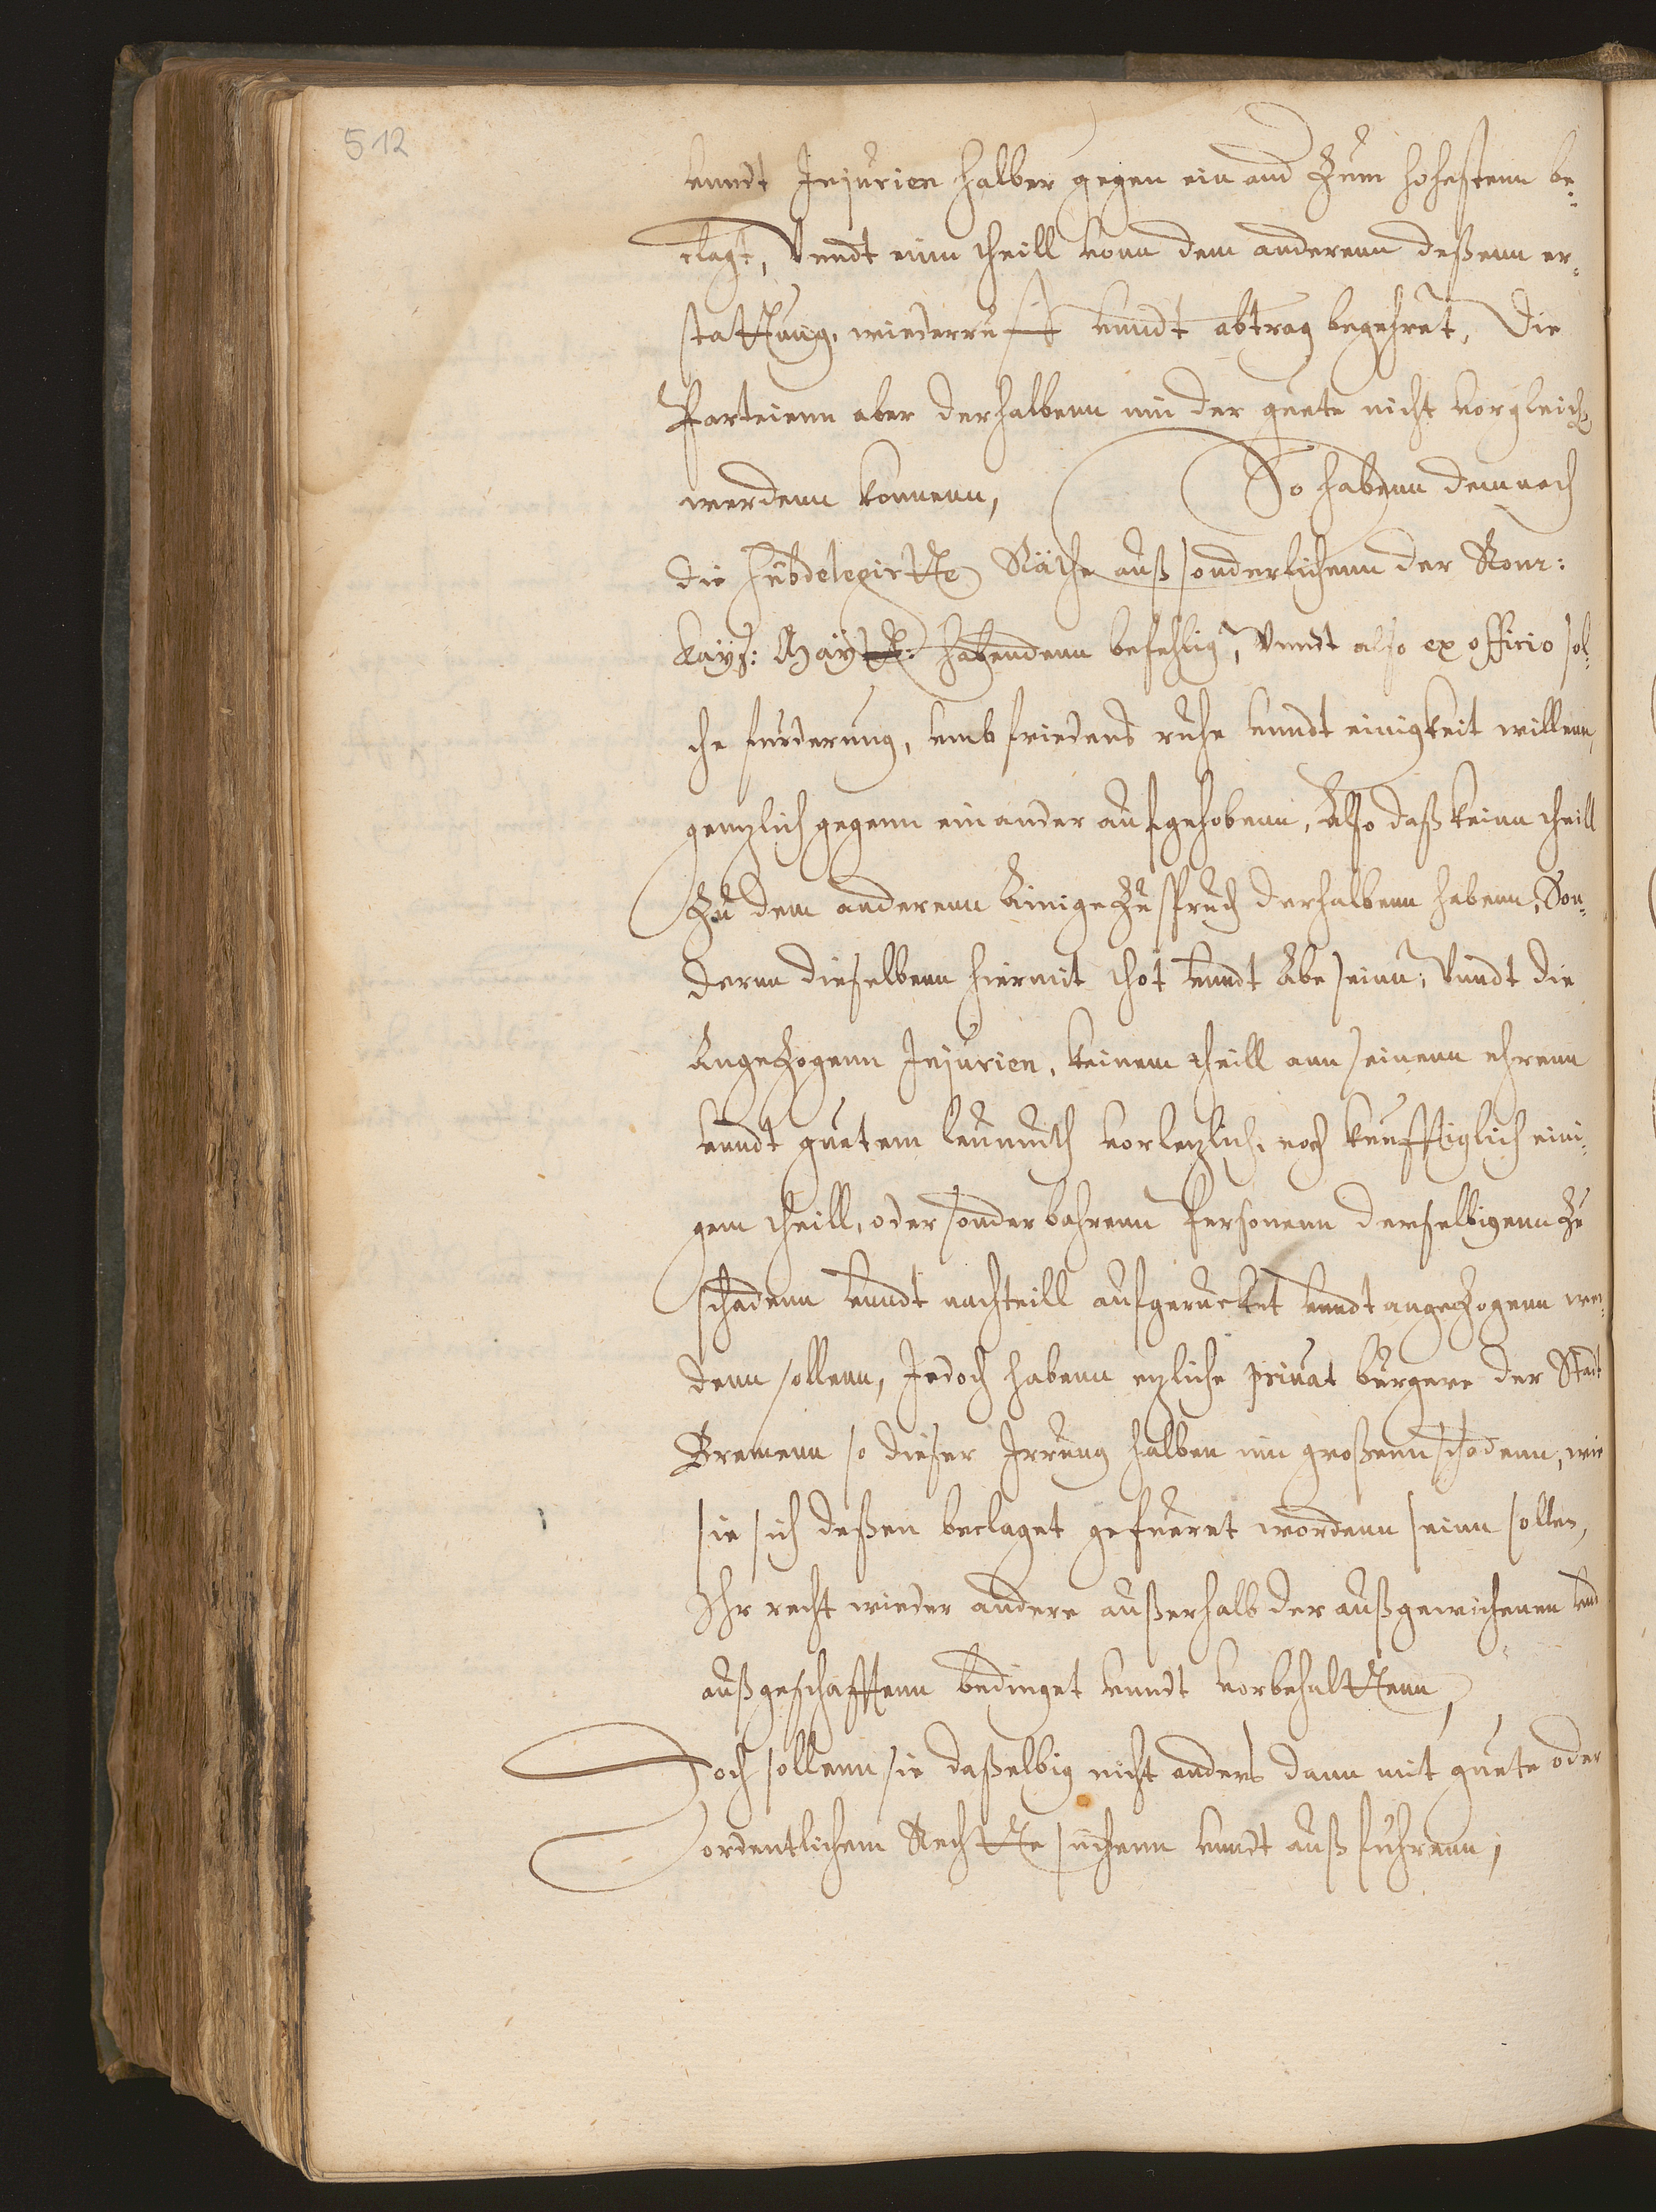 512
vnndt Injurien halber gegen ein and Zum hohestenn be¬
clagt, Vnndt einn theill vonn dem anderenn deßenn er¬
stattung, wiederruff vnndt abtrag begehret, Die
Parteienn aber derhalbenn inn der guete nicht vorgleich
werdenn konnenn, So habenn demnach
die Subdelegirtte Räthe auß sonderlichenn der Röm:
Kays: Maytt: habendenn befehlig, Vnndt also ex officio sol¬
che furderung, vmb friedens ruhe vnndt einigkeit willenn,
gentzlich gegenn einander aufgehobenn, Also daß keinn theill
Zu dem anderenn Einige Zuspruch derhalbenn habenn, Son¬
dernn dieselbenn hiermit thot vnndt Abe seinn, Vnndt die
AngeZogenn Injurien, keinem theill ann seinenn ehrenn
vnndt guetem leumuth vorletzlich, noch kunfftiglich eini¬
gem theill, oder sonderbahrenn Personenn derselbigenn Zu
schadenn vnndt nachteill aufgerucket vnndt angeZogenn wer¬
denn sollenn, Jedoch habenn etzliche priuat burgere der Stadt
Bremenn so dieser Irrung halben inn großenn schadenn, wie
sie sich deßen beclaget gefueret wordenn seinn sollen,
Ihr recht wieder andere außerhalb der außgewichenen vnd
außgeschafftenn bedinget vnndt vorbehalttenn,
Doch sollenn sie daßelbig nicht anders dann mit guete oder
ordentlichem Rechtte suchenn vnndt außfuhrenn,